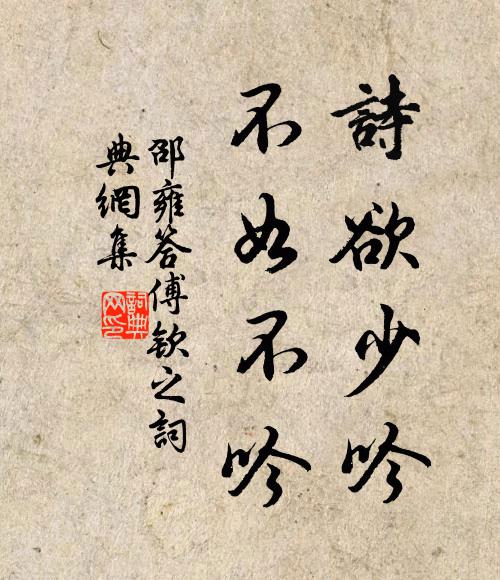 詩欲少吟
不如不吟
邵雍答傅欽之詞
典網集
詞典網印